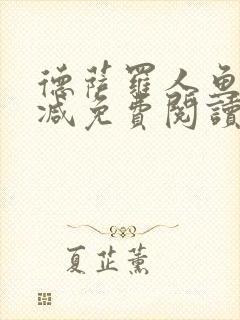 德薩羅人魚
減免費閱讀
夏芷薰